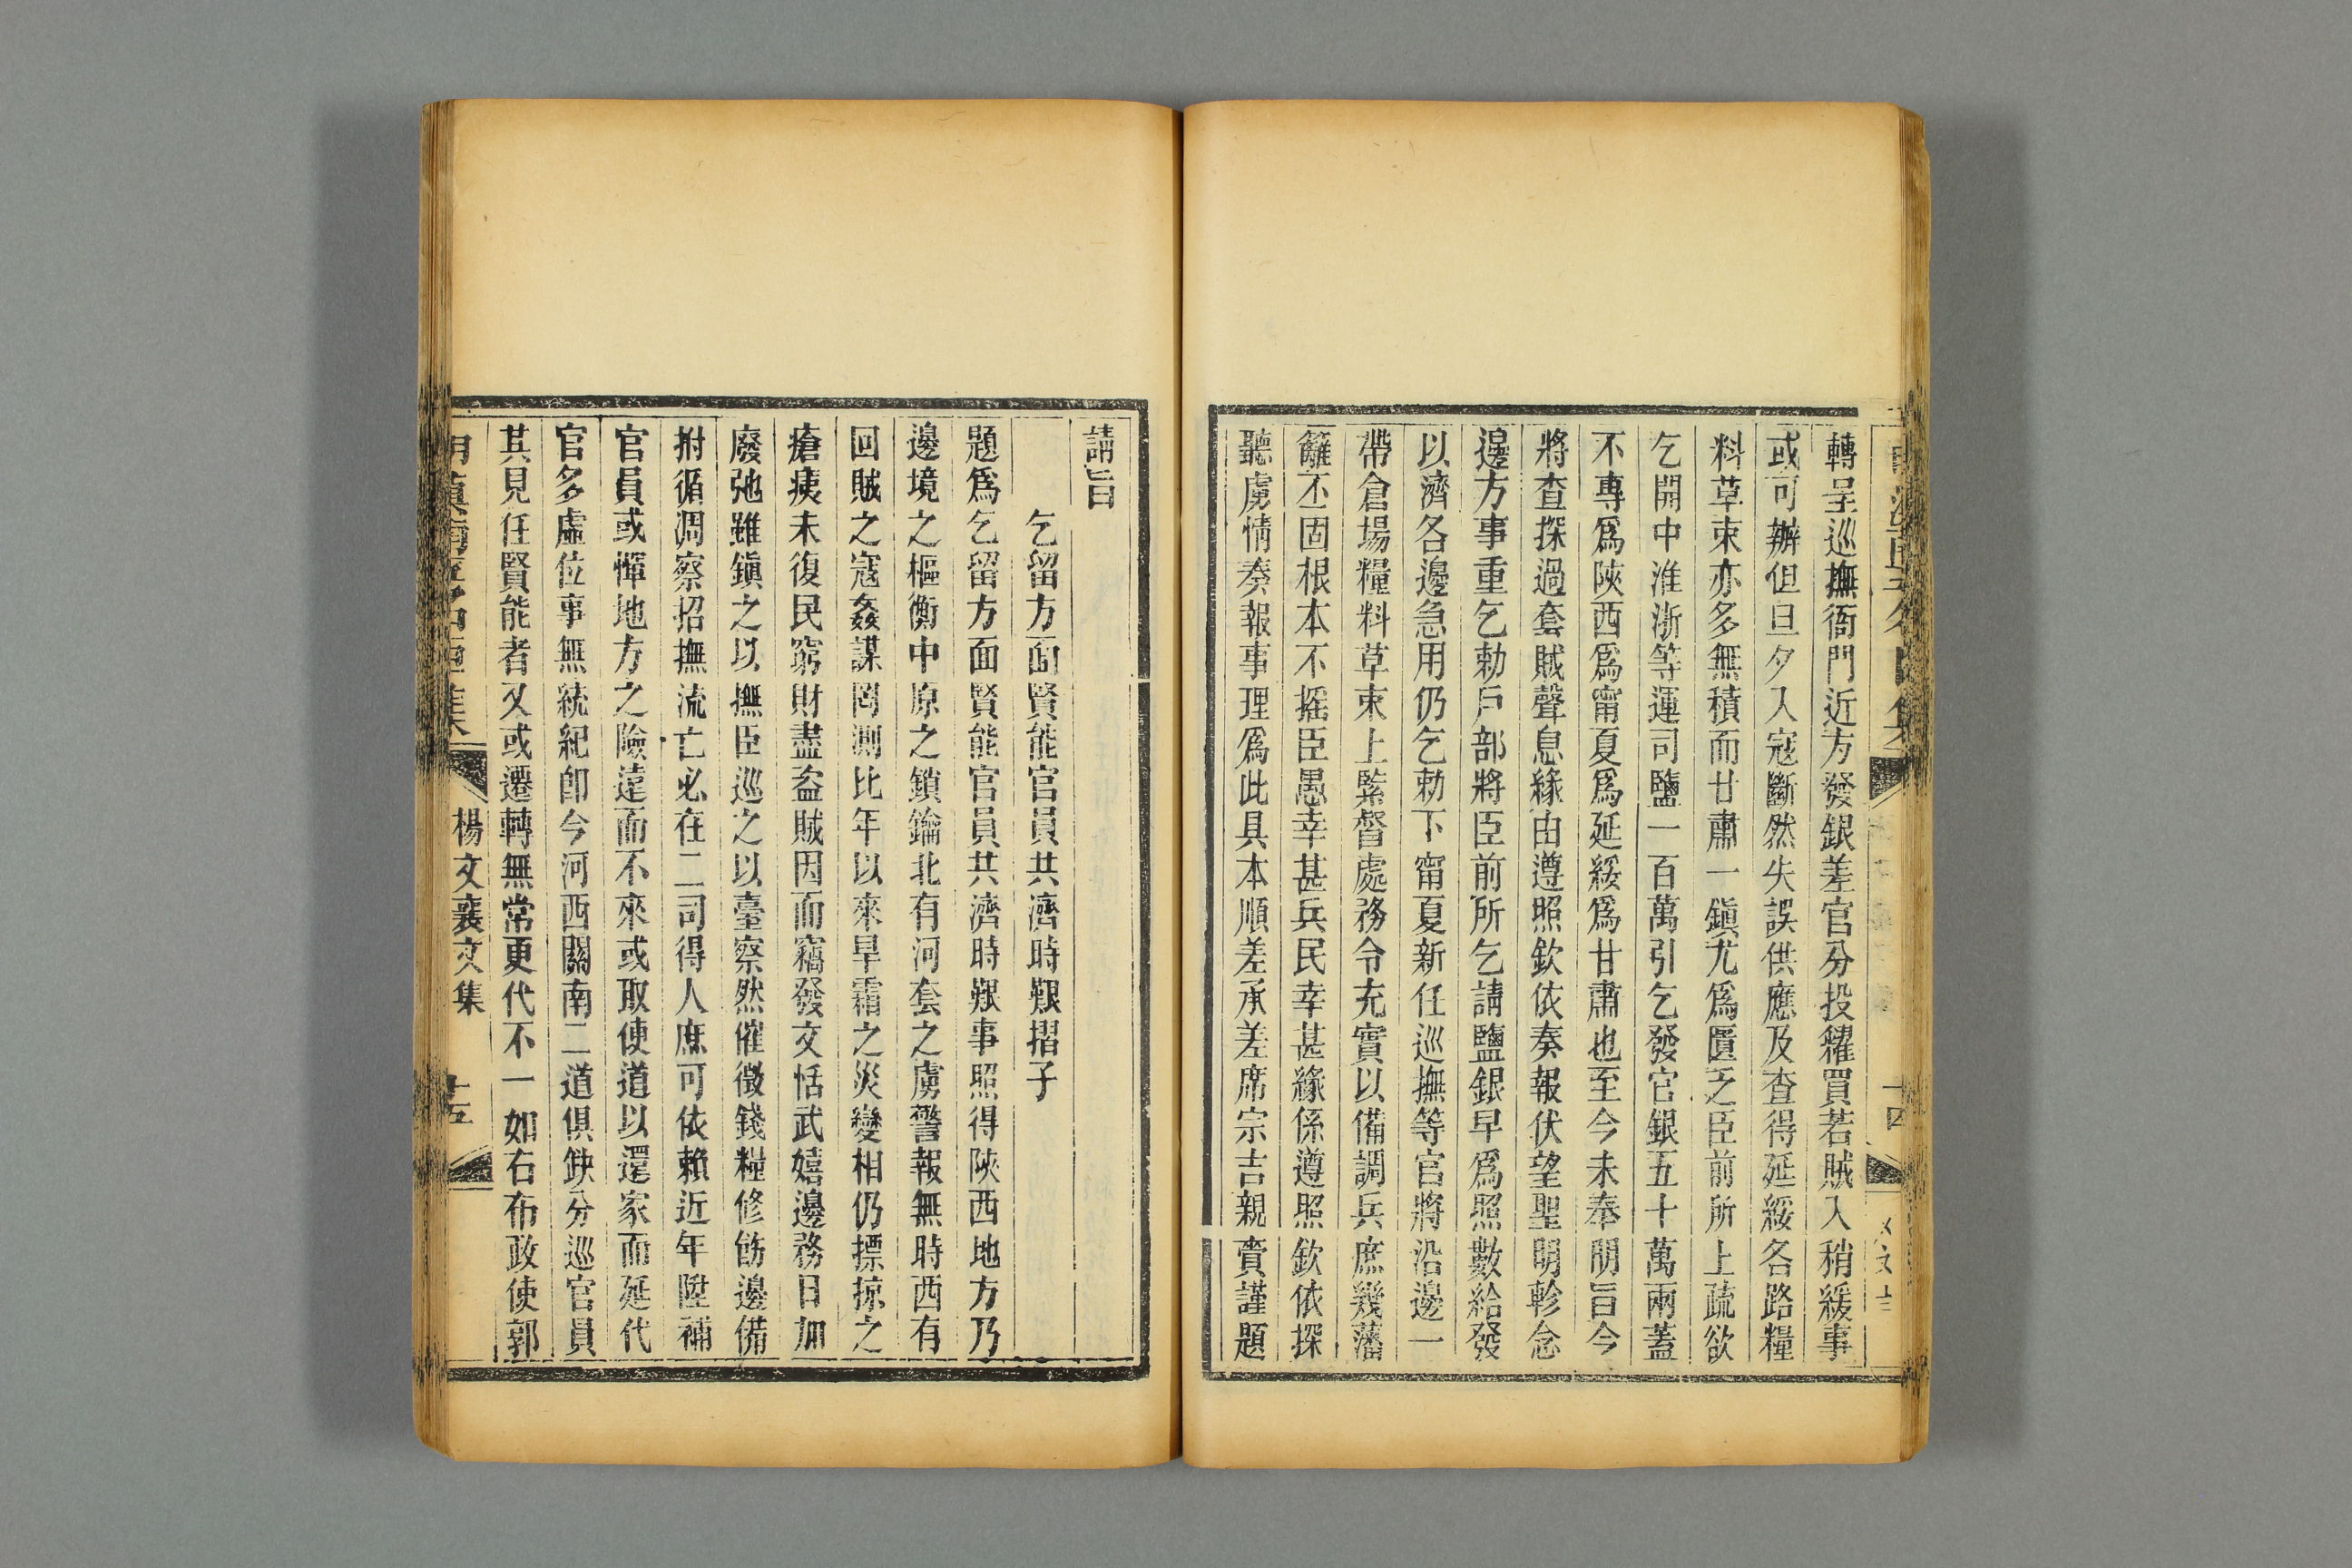 轉呈巡撫衙門近方發銀差官分投糴買若賊入稍緩事
或可辦但旦夕入寇斷然失誤供應及查得延綏各路糧
料草束亦多無積而甘肅一鎮尤爲匱乏臣前所上疏欲
乞開中淮浙等運司鹽一百萬引乞發官銀五十萬兩蓋
不專爲陝西爲甯夏爲延綏爲甘肅也至今未奉明旨今
將查探過套賊聲息緣由遵照欽依奏報伏望聖明軫念
邊方事重乞勅戶部將臣前所乞請鹽銀早爲照數給發
以濟各邊急用仍乞勅下甯夏新任巡撫等官將沿邊一
帶倉場糧料草束上緊督處務令充實以備調兵庶幾藩
籬不固根本不搖臣愚幸甚兵民幸甚緣係遵照欽依探
聽虜情奏報事理爲此具本順差承差席宗吉親賫謹題
請旨
乞留方面賢能官員共濟時艱摺子
題爲乞留方面賢能官員共濟時艱事照得陝西地方乃
邊境之樞衡中原之鎖鑰北有河套之虜警報無時西有
回賊之寇姦謀罔測比年以來旱霜之災變相仍摽掠之
瘡痍未復民窮財盡盜賊因而竊發文恬武嬉邊務日加
廢弛雖鎮之以撫臣巡之以臺察然催徵錢糧修飭邊備
拊循凋瘵招撫流亡必在二司得人庶可依賴近年陞補
官員或憚地方之險遠而不來或取便道以還家而延代
官多虛位事無統紀卽今河西關南二道俱缺分巡官員
其見任賢能者又或遷轉無常更代不一如右布政使郭
楊文襄文集
十五